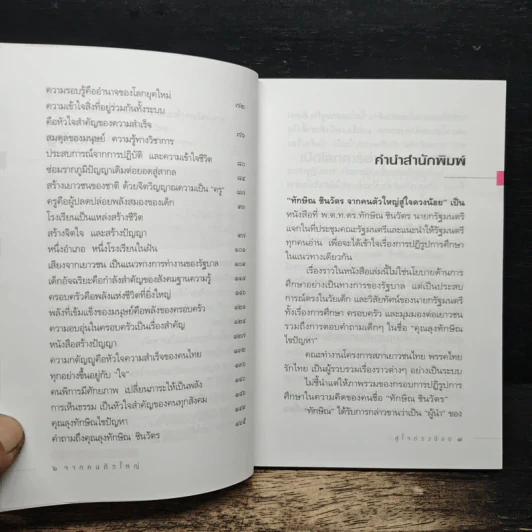 ความรอบรู้คืออำนาจของโลกยุคใหม่ ๗๒
ความเข้าใจสิ่งที่อยู่ร่วมกันทั้งระบบ
คือหัวใจสำคัญของความสำเร็จ ๗๖
สมดุลของมนุษย์ ความรู้ทางวิชาการ
ประสบการณ์จากการปฏิบัติ และความเข้าใจชีวิต ๘๐
ซ่อมรากภูมิปัญญาเดิมต่อยอดสู่สากล ๘๔
สร้างเยาวชนของชาติ ด้วยจิตวิญญาณความเป็น "ครู"
ครูผู้ปลดปล่อยพลังสมองของเด็ก
โรงเรียนเป็นแหล่งสร้างชีวิต
สร้างจิตใจ และสร้างปัญญา
หนึ่งอำเภอ หนึ่งโรงเรียนในฝัน
เสียงจากเยาวชน เป็นแนวทางการทำงานของรัฐบาล
เด็กอัจฉริยะคือกำลังสำคัญของสังคมฐานความรู้
ครอบครัวคือพลังแห่งชีวิตที่ยิ่งใหญ่
พลังที่เข้มแข็งของมนุษย์คือพลังของครอบครัว
ความอบอุ่นในครอบครัวเป็นเรื่องสำคัญ
หนังสือสร้างปัญญา
ความกตัญญูคือหัวใจความสำเร็จของคนไทย
ทุกอย่างขึ้นอยู่กับ "ใจ"
คนพิการมีศักยภาพ เปลี่ยนภาระให้เป็นพลัง
การเห็นธรรม เป็นหัวใจสำคัญของคนทุกสังคม
คุณลุงทักษิณไขปัญหา
คำถามถึงคุณลุงทักษิณ ชินวัตร
๖ จากคนตัวใหญ่
คำนำสำนักพิมพ์
"ทักษิณ ชินวัตร จากคนตัวใหญ่สู่ใจดวงน้อย" เป็น
หนังสือที่ พ.ต.ท.ดร.ทักษิณ ชินวัตร นายกรัฐมนตรี
แจกในที่ประชุมคณะรัฐมนตรีและแนะนำให้รัฐมนตรี
ทุกคนอ่าน เพื่อจะได้เข้าใจเรื่องการปฏิรูปการศึกษา
ในแนวทางเดียวกัน
เรื่องราวในหนังสือเล่มนี้ไม่ใช่นโยบายด้านการ
ศึกษาอย่างเป็นทางการของรัฐบาล แต่เป็นประสบ
การณ์ตรงในวัยเด็ก และวิสัยทัศน์ของนายกรัฐมนตรี
ทั้งเรื่องการศึกษา ครอบครัว และมุมมองต่อเยาวชน
รวมถึงการตอบคำถามเด็กๆ ในชื่อ "คุณลุงทักษิณ
ไขปัญหา"
คณะทำงานโครงการสภาเยาวชนไทย พรรคไทย
รักไทย เป็นผู้รวบรวมเรื่องราวต่างๆ อย่างเป็นระบบ
ไม่ชี้นำแต่ให้ภาพรวมของกรอบการปฏิรูปการ
ศึกษาในความคิดของคนชื่อ "ทักษิณ ชินวัตร"
"ทักษิณ" ได้รับการกล่าวขานว่าเป็น "ผู้นำ" ของ
สู่ใจดวงน้อย ๗